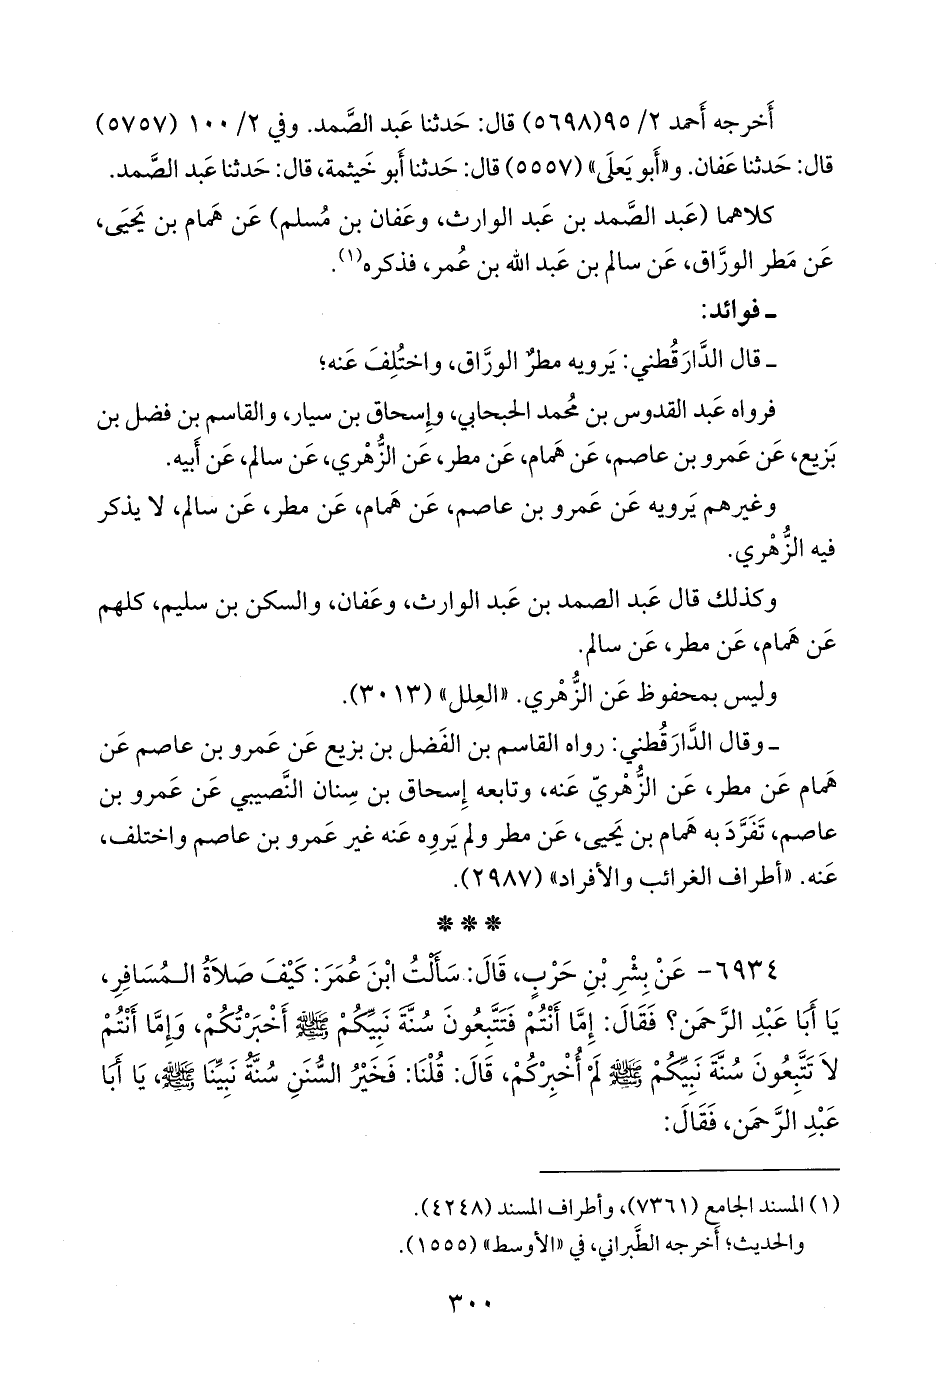 أَخرجه أَحمد ٢/ ٩٥(٥٦٩٨) قال: حَدثنا عَبد الصَّمد. وفي ٢/ ١٠٠ (٥٧٥٧)
قال: حَدثنا عَفان. و«أَبو يَعلَى» (٥٥٥٧) قال: حَدثنا أَبو خَيثمة، قال: حَدثنا عَبد الصَّمد.
كلاهما (عَبد الصَّمد بن عَبد الوارث، وعَفان بن مُسلم) عَن هَمام بن يَحيَى،
عَن مَطر الورَّاق، عَن سالم بن عَبد الله بن عُمر، فذكره(١).
ـ فوائد:
ـ قال الدَّارَقُطني: يَرويه مطرٌ الورَّاق، واختُلِفَ عَنه؛
فرواه عَبد القدوس بن مُحمد الحبحابي، وإِسحاق بن سيار، والقاسم بن فضل بن
بَزيع، عَن عَمرو بن عاصم، عَن هَمام، عَن مطر، عَن الزُّهْري، عَن سالم، عَن أَبيه.
وغيرهم يَرويه عَن عَمرو بن عاصم، عَن هَمام، عَن مطر، عَن سالم، لا يذكر
فيه الزُّهْري.
وكذلك قال عَبد الصمد بن عَبد الوارث، وعَفان، والسكن بن سليم، كلهم
عَن هَمام، عَن مطر، عَن سالم.
وليس بمحفوظ عَن الزُّهْري. «العِلل» (٣٠١٣).
ـ وقال الدَّارَقُطني: رواه القاسم بن الفَضل بن بزيع عَن عَمرو بن عاصم عَن
هَمام عَن مطر، عَن الزُّهْريّ عَنه، وتابعه إِسحاق بن سِنان النَّصيبي عَن عَمرو بن
عاصم، تَفَرَّدَ به هَمام بن يَحيى، عَن مطر ولم يَروِه عَنه غير عَمرو بن عاصم واختلف،
عَنه. «أطراف الغرائب والأفراد» (٢٩٨٧).
* * *
٦٩٣٤- عَنْ بِشْرِ بْنِ حَرْبٍ، قَالَ: سَأَلْتُ ابْنَ عُمَرَ: كَيْفَ صَلَاةُ الْمُسَافِرِ،
يَا أَبَا عَبْدِ الرَّحمَنِ؟ فَقَالَ: إِمَّا أَنْتُمْ فَتَتَّبِعُونَ سُنَّةَ نَبِيِّكُمْ ﷺ أَخْبَرْتُكُمْ، وَإِمَّا أَنْتُمْ
لَا تَتَّبِعُونَ سُنَّةَ نَبِيِّكُمْ ﷺ لَمْ أُخْبِرْكُمْ، قَالَ: قُلْنَا: فَخَيْرُ السُّنَنِ سُنَّةُ نَبِيِّنَا ﷺ، يَا أَبَا
عَبْدِ الرَّحمَنِ، فَقَالَ:
(١) المسند الجامع (٧٣٦١)، وأطراف المسند (٤٢٤٨).
والحديث؛ أَخرجه الطَّبراني، في «الأوسط» (١٥٥٥).
٣٠٠